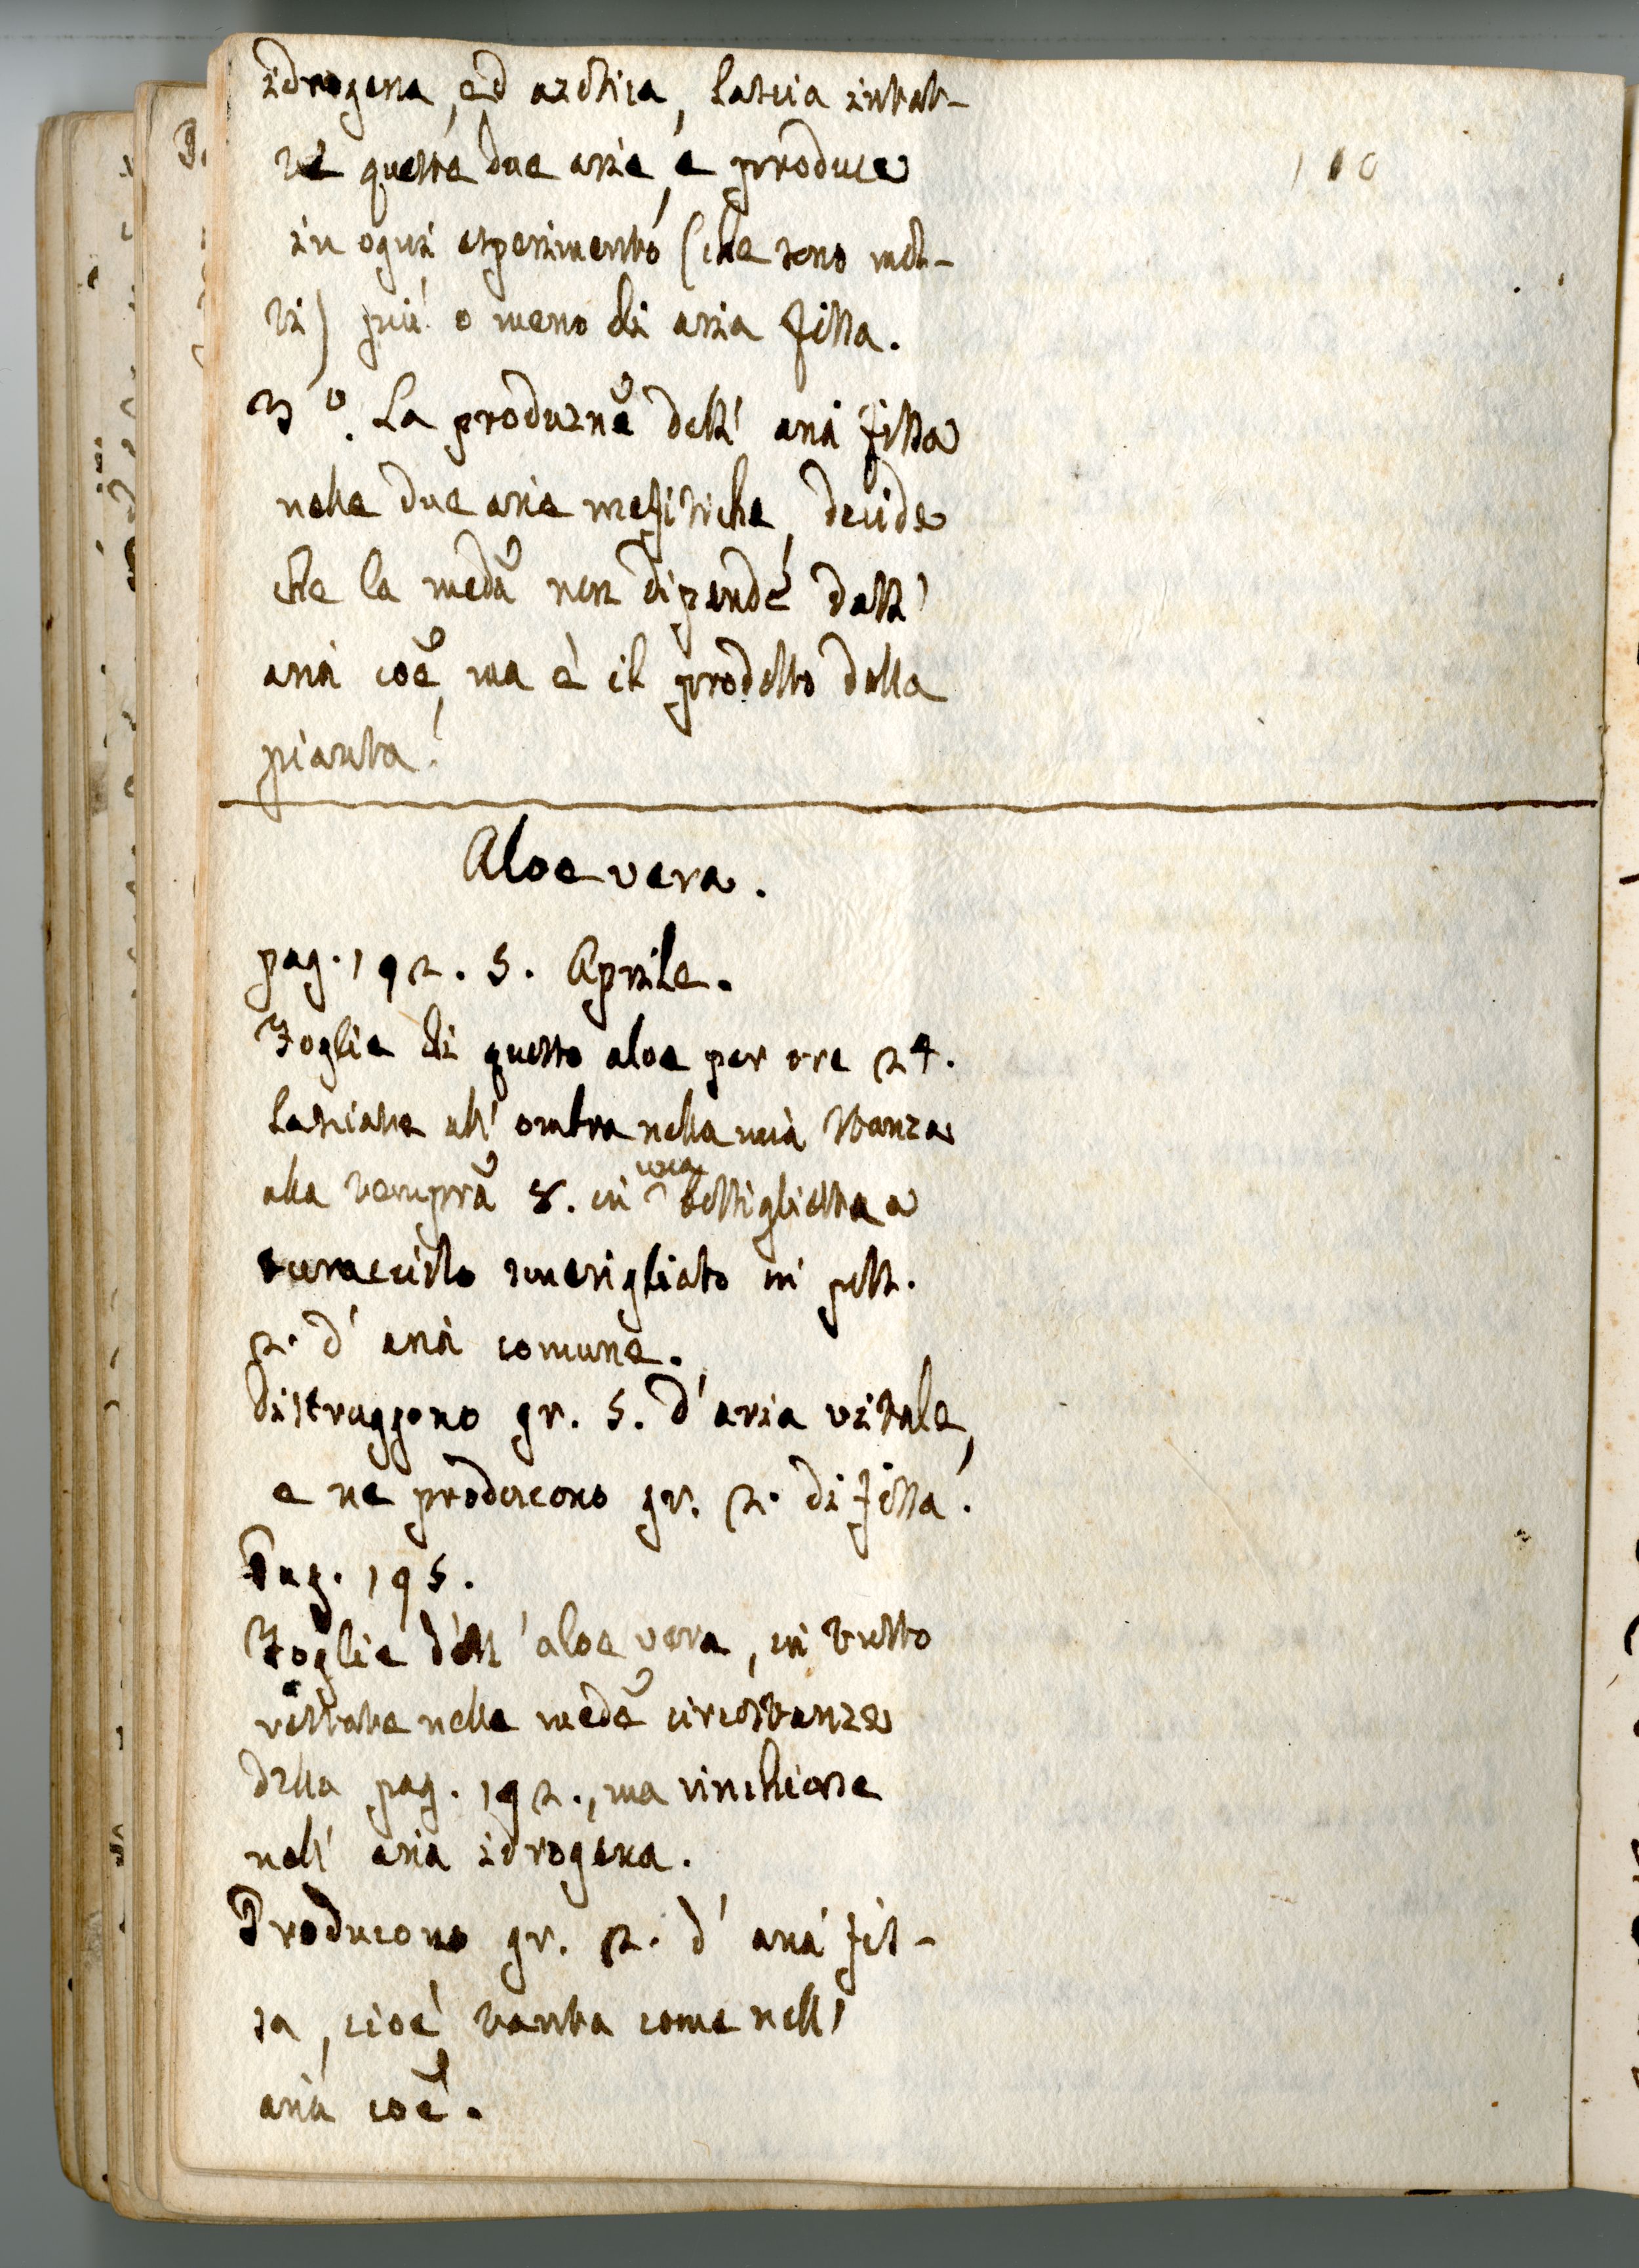 idrogena, ed azotica, lascia intat-
te queste due arie, e produce
in ogni esperimento (che sono mol-
ti) più o meno di aria fissa.
3°. La produzne dell' aria fissa
nelle due arie mefitiche, decide
che la meda non dipende dall'
aria coe, ma è il prodotto della
pianta.
110
Aloe vera.
pag. 192. 5. Aprile.
Foglie di questo aloe per ore 24.
lasciate all' ombra nella mia stanza
alla tempra 8. in una bottiglietta a
turacciolo smerigliato in poll.
2. d' aria comune.
Distruggono gr. 5. d' aria vitale,
e ne producono gr. 2. di fissa.
Pag. 195.
Foglie dell' aloe vera, in tutto
restate nelle mede circostanze
della pag. 192., ma rinchiose
nell' aria idrogena.
Producono gr. 2. d' aria fis-
sa, cioè tanta come nell'
aria coe.